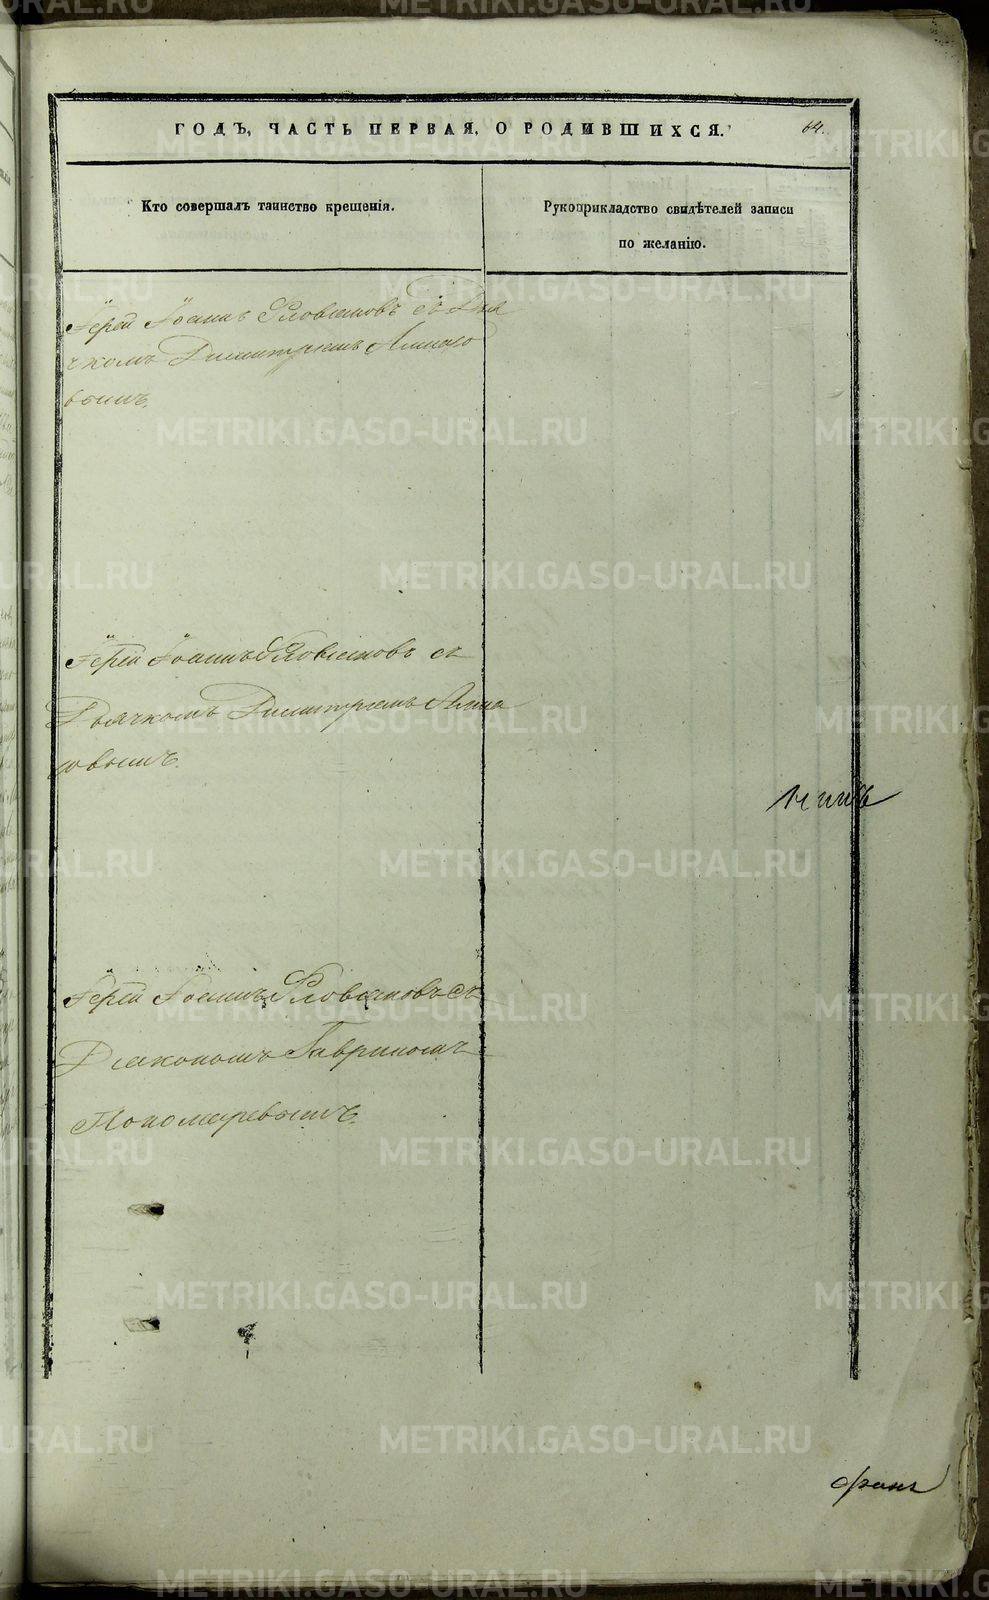 ГОДЪ, ЧАСТЬ ПЕРВАЯ, О РОДИВШИХСЯ.
64.
Кто совершалъ таинство крещенія.
Рукоприкладство свидѣтелей записи
по желанію.
Іерей Іоаннъ Словцовъ съ Дья
чкомъ Димитріемъ
вымъ.
Іерей Іоаннъ Словцовъ съ
Дьячкомъ Димитріемъ
вымъ.
Іерей Іоаннъ Словцовъ съ
Діакономъ Гавриломъ
Пономаревымъ.
METRIKI.GASO-URAL.RU